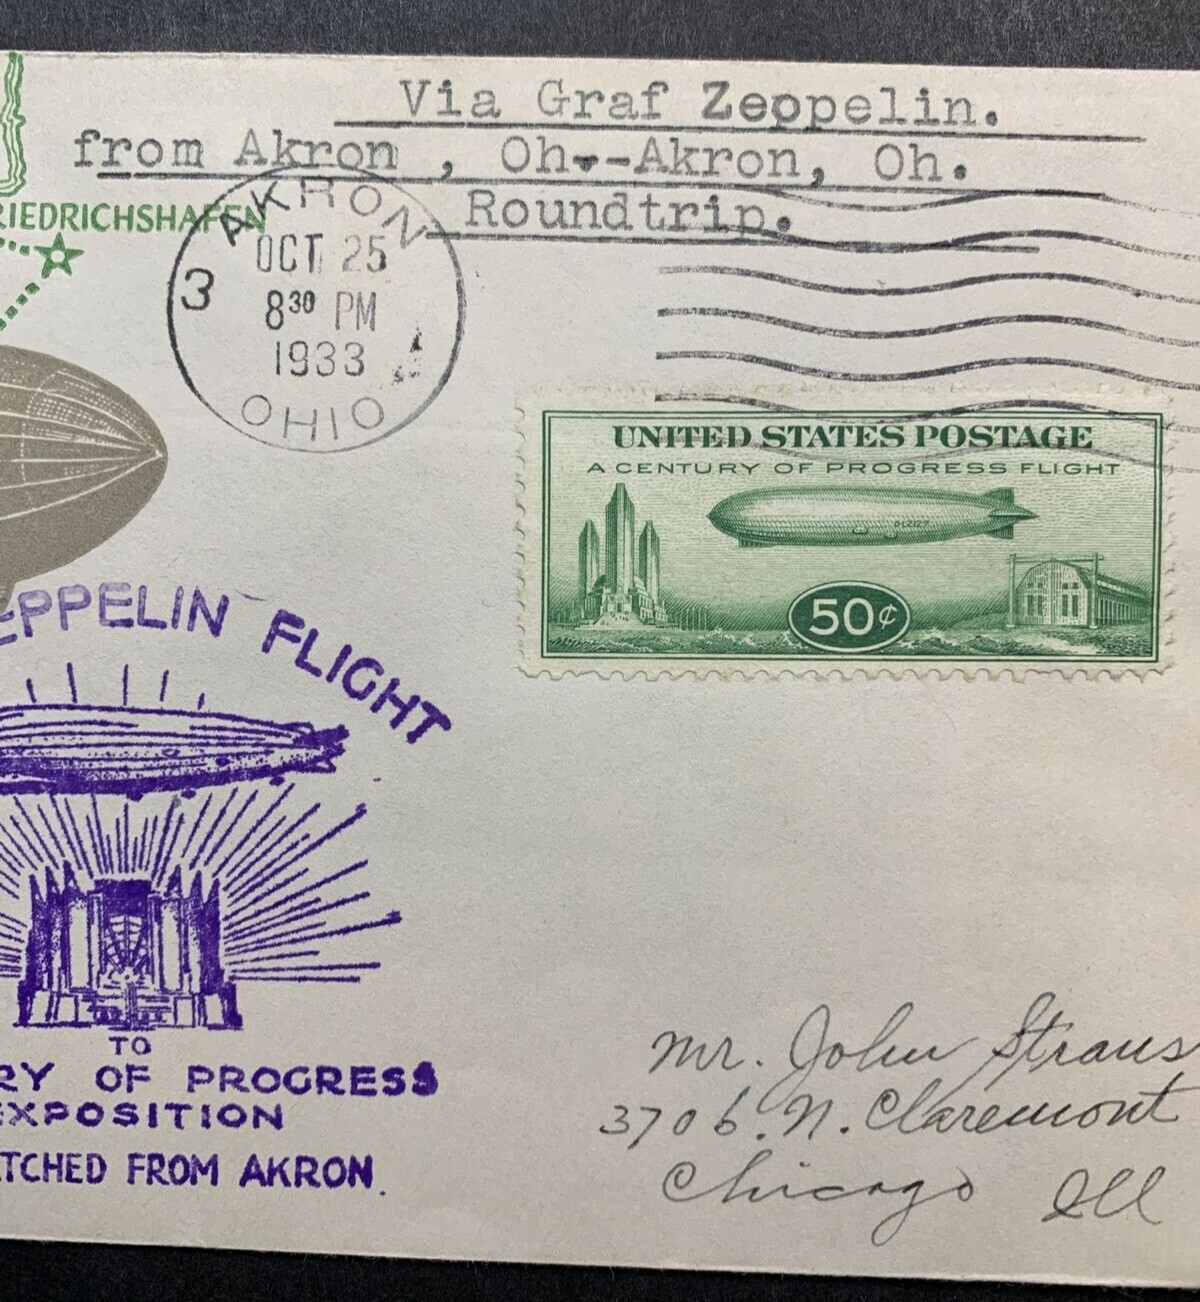 Via Graf Zeppelin.
from Akron , Oh.--Akron, Oh.
Roundtrip.
RIEDRICHSHAFEN
AKRON
OCT 25
3
8³⁰ PM
1933
OHIO
UNITED STATES POSTAGE
A CENTURY OF PROGRESS FLIGHT
D-LZ127
50¢
EPPELIN FLIGHT
TO
RY OF PROGRESS
EXPOSITION
ATCHED FROM AKRON.
Mr. John Straus
3706 N. Claremont
Chicago Ill